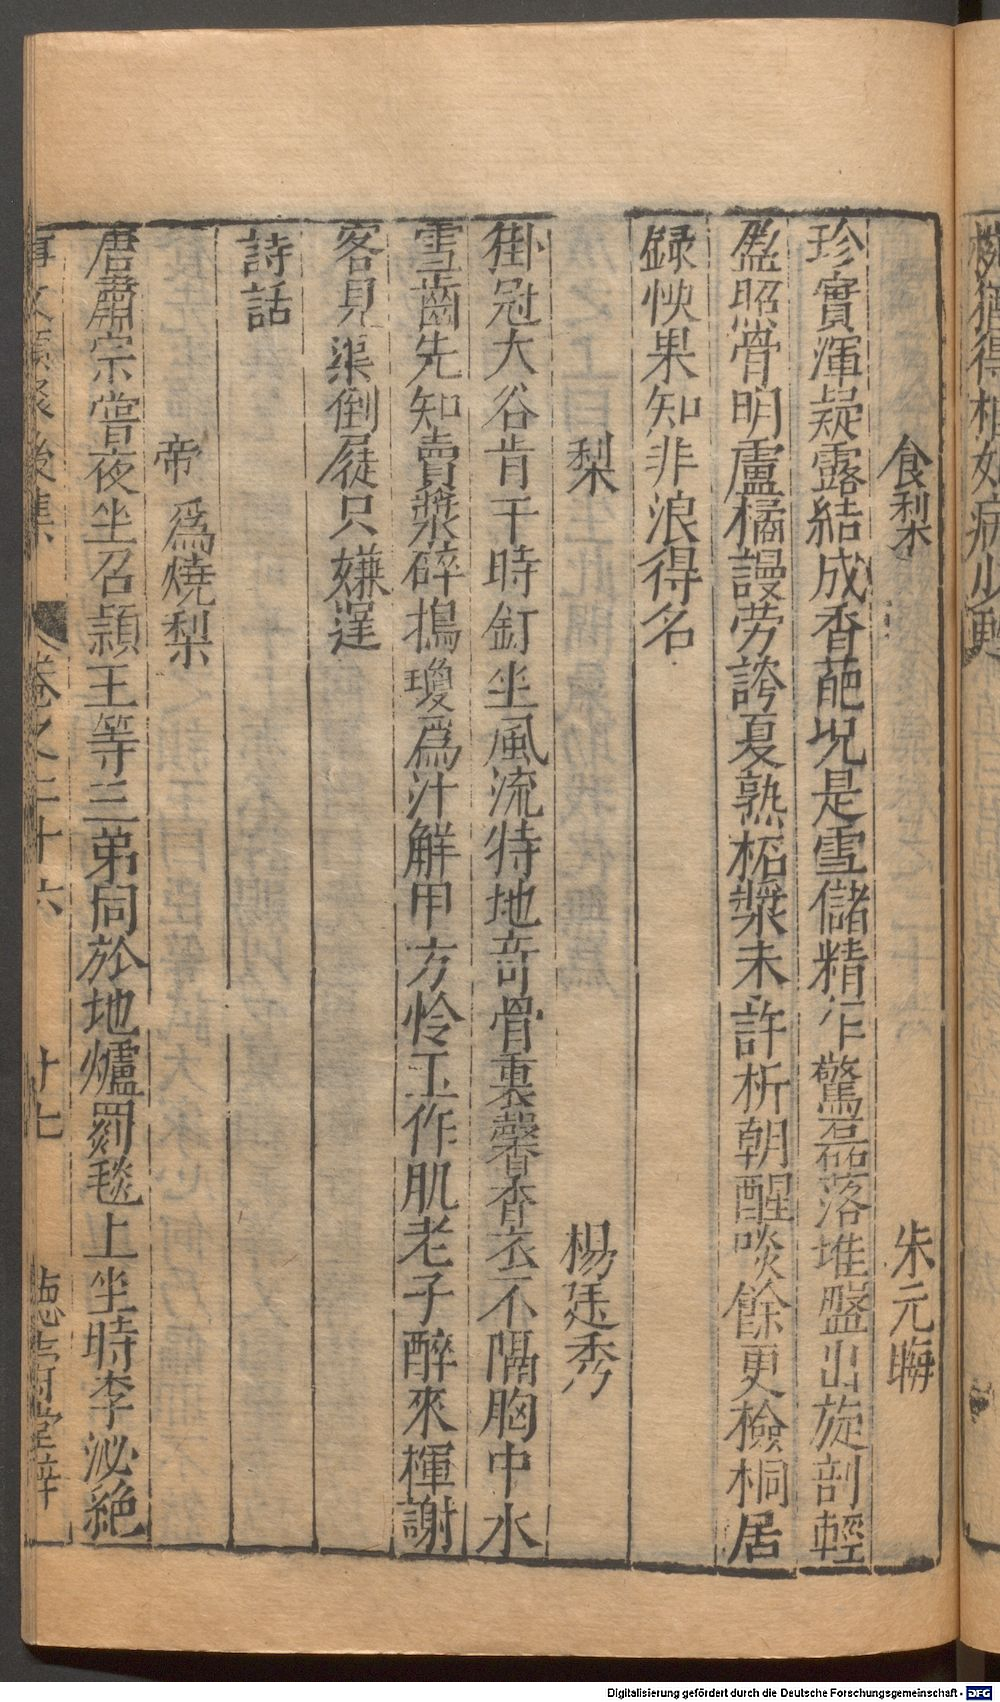 食梨 朱元晦
珍實渾疑露結成香葩况是雪儲精乍驚磊落堆盤出旋剖輕
盈照骨明盧橘謾勞誇夏熟柘漿未許析朝酲啖餘更檢桐居
録快果知非浪得名
梨 楊廷秀
掛冠大谷肯干時釘坐風流特地竒骨裏馨香衣不隔胸中水
雪齒先知賣漿碎搗瓊爲汁解甲方怜玉作肌老子醉來揮謝
客見渠倒屣只嫌遲
詩話
帝爲燒梨
唐肅宗嘗夜坐召頴王等三弟同於地爐罽毯上坐時李泌絶
事文類聚後集 卷之二十六 廿七 德壽堂梓
Digitalisierung gefördert durch die Deutsche Forschungsgemeinschaft - DFG